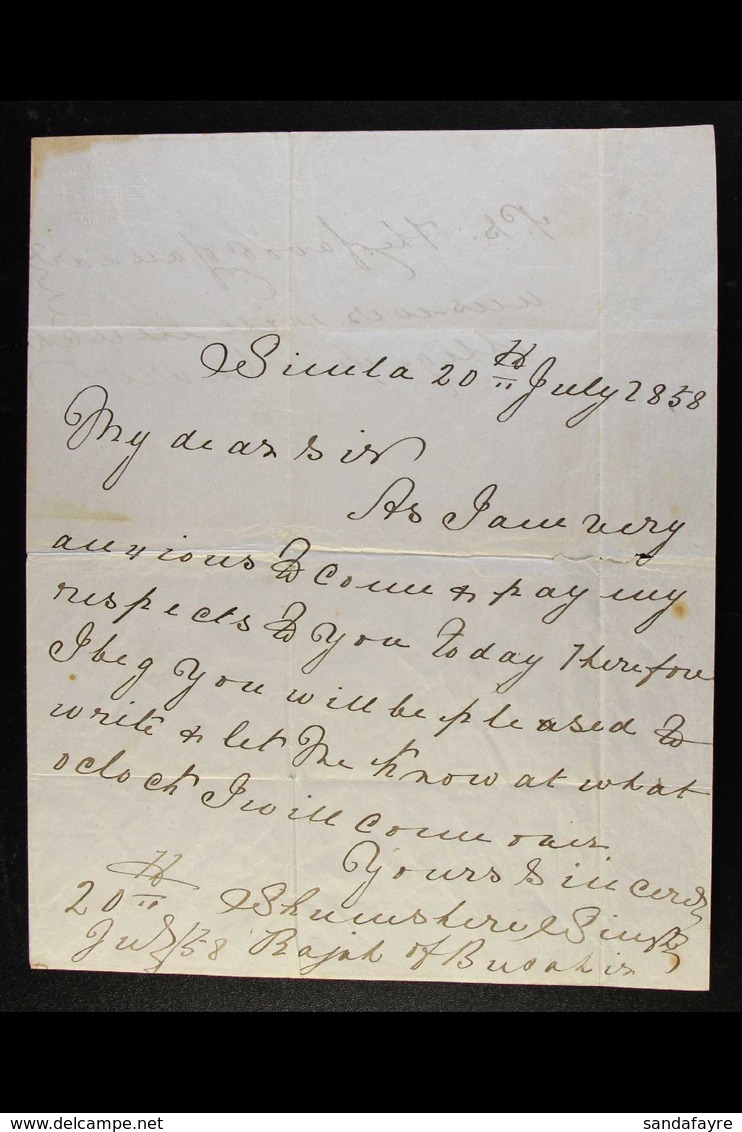 Simla 20th July 1858
My dear Sir
As I am very
anxious to come & pay my
respects to you today Therefore
I beg you will be pleased to
write & let me know at what
oclock I will come over
Yours Sincerely
20th Shumshere Singh
July/58 Rajah of Busahir
delcampe.net
sandafayre